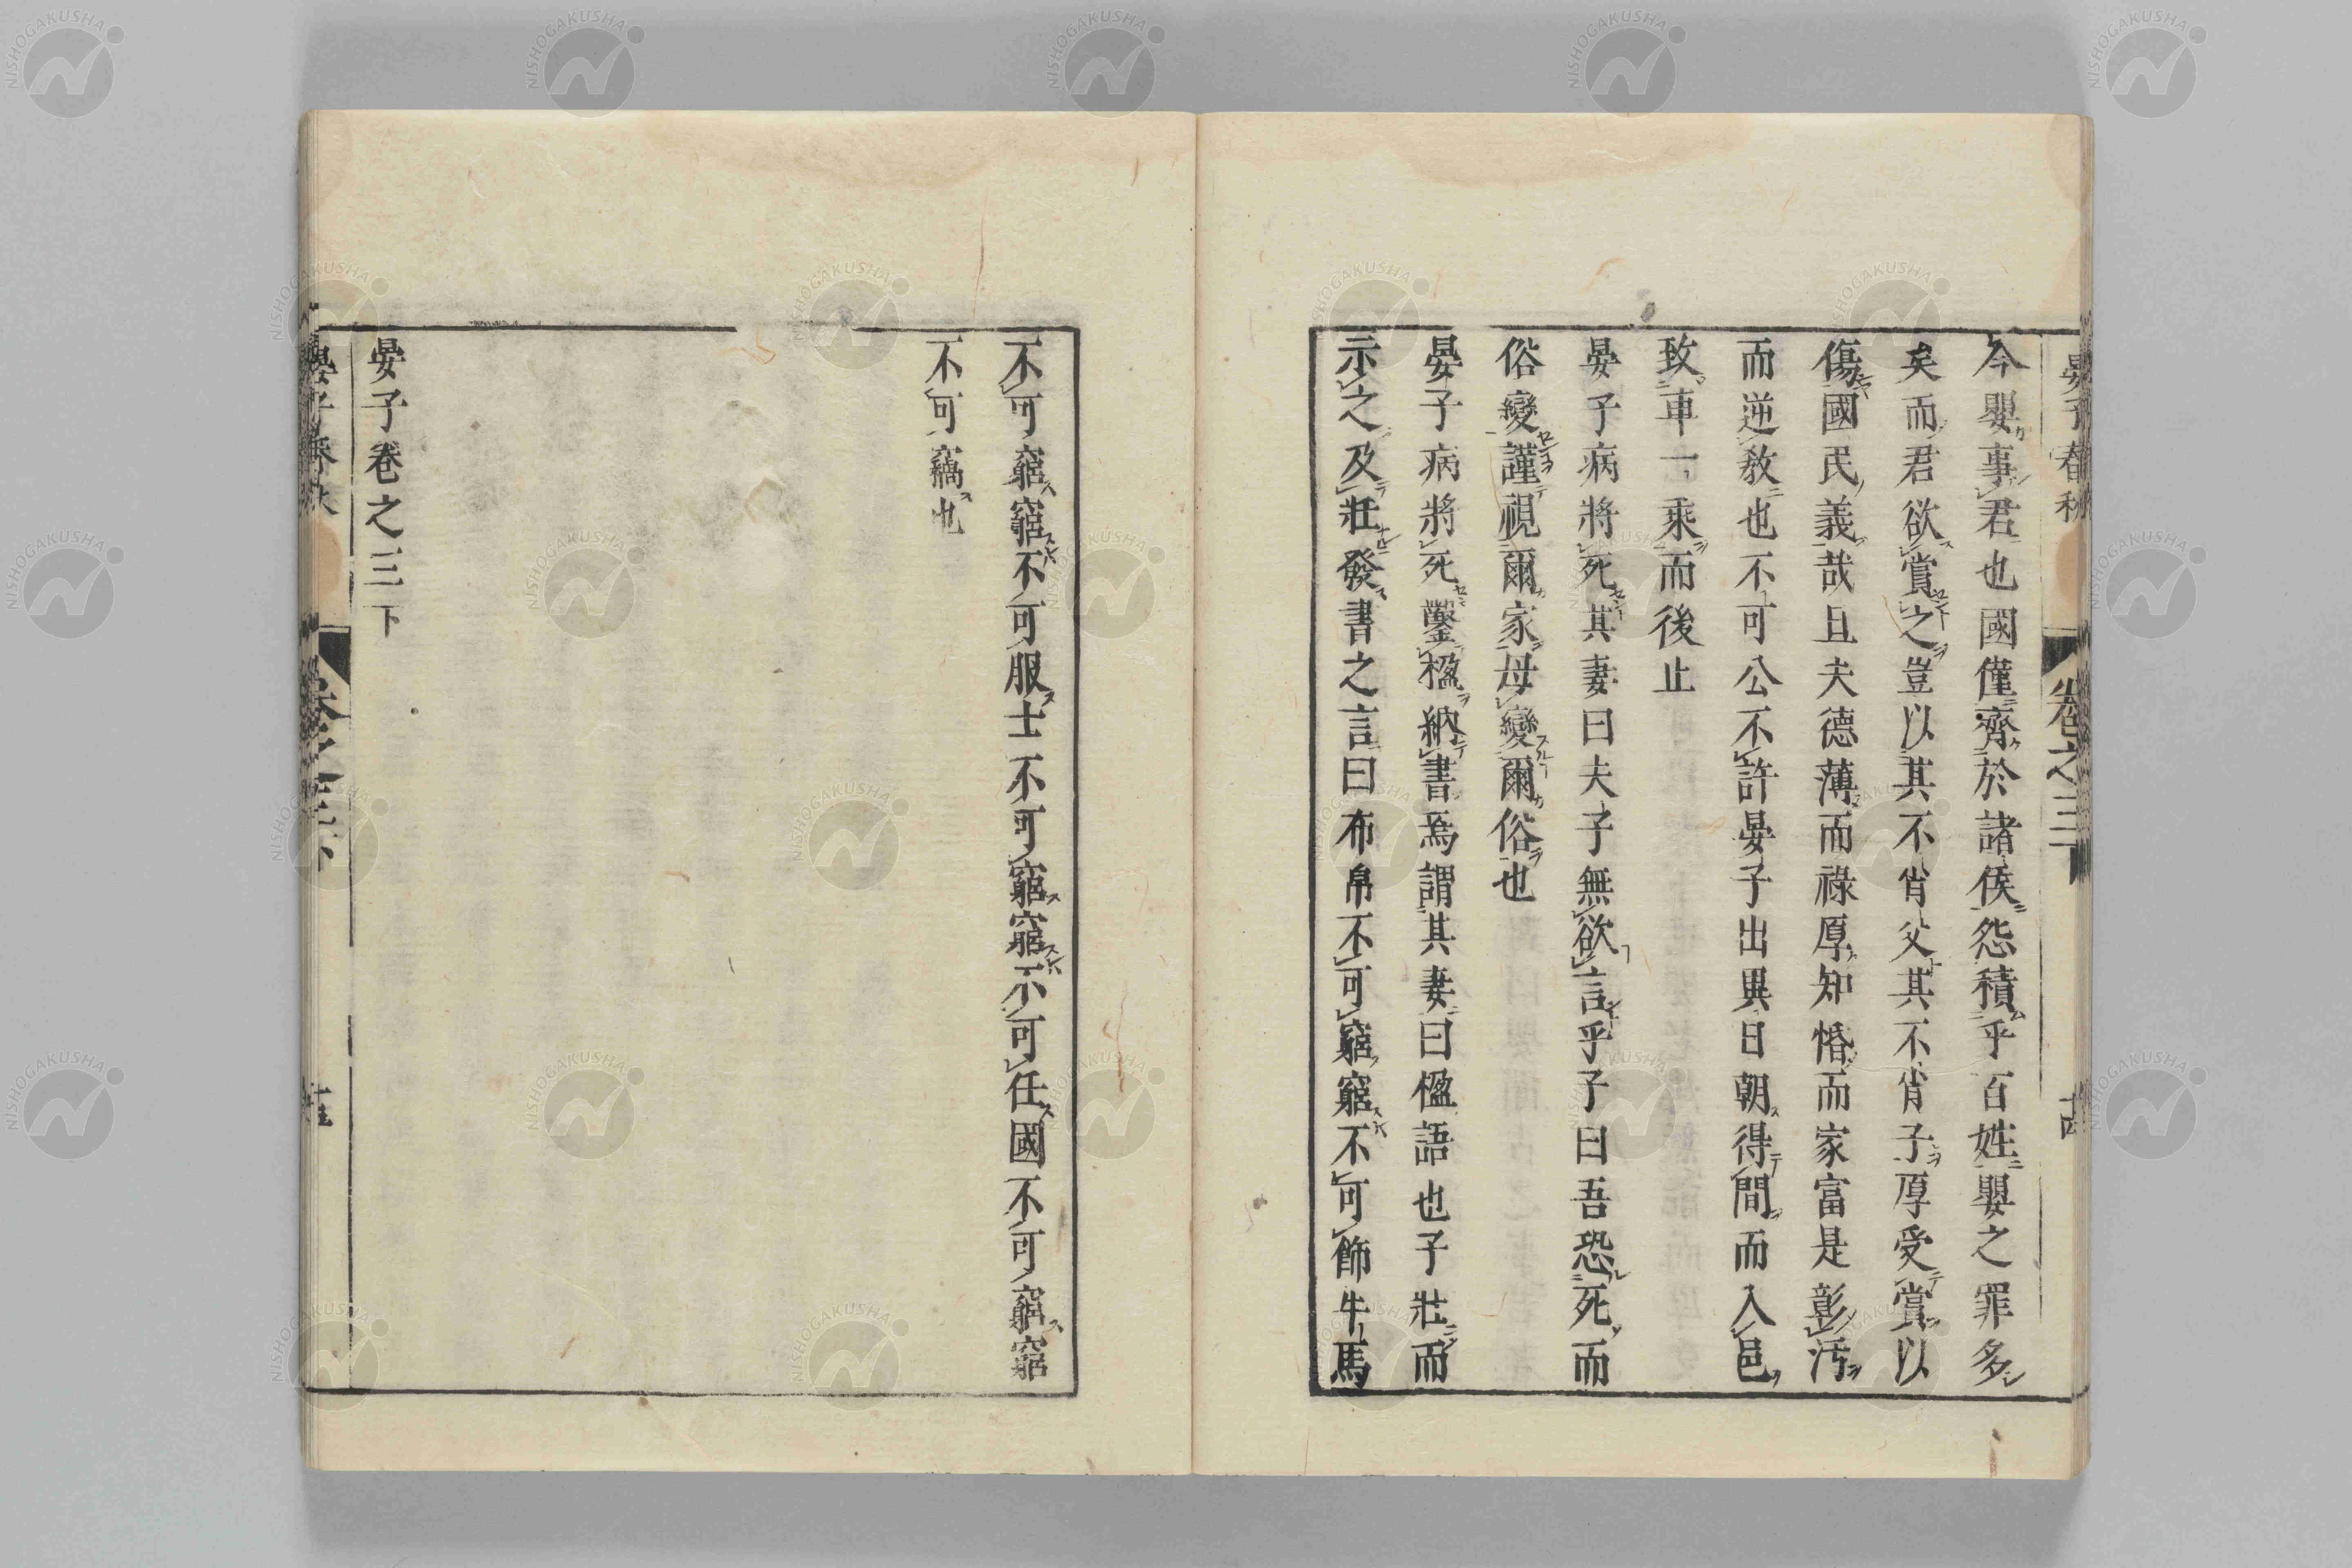 晏子春秋　卷之三下　十四
今嬰事君也國僅齊於諸侯怨積乎百姓嬰之罪多
矣而君欲賞之豈以其不肖父其不肖子厚受賞以
傷國民義哉且夫德薄而祿厚知惛而家富是彰汚
而逆敎也不可公不許晏子出異日朝得間而入邑
致車一乘而後止
晏子病將死其妻曰夫子無欲言乎子曰吾恐死而
俗變謹視爾家毋變爾俗也
晏子病將死鑿楹納書焉謂其妻曰楹語也子壯而
示之及壯發書之言曰布帛不可窮窮不可飾牛馬
不可窮窮不可服士不可窮窮不可任國不可窮窮
不可竊也
晏子卷之三下
晏子春秋　卷之三下